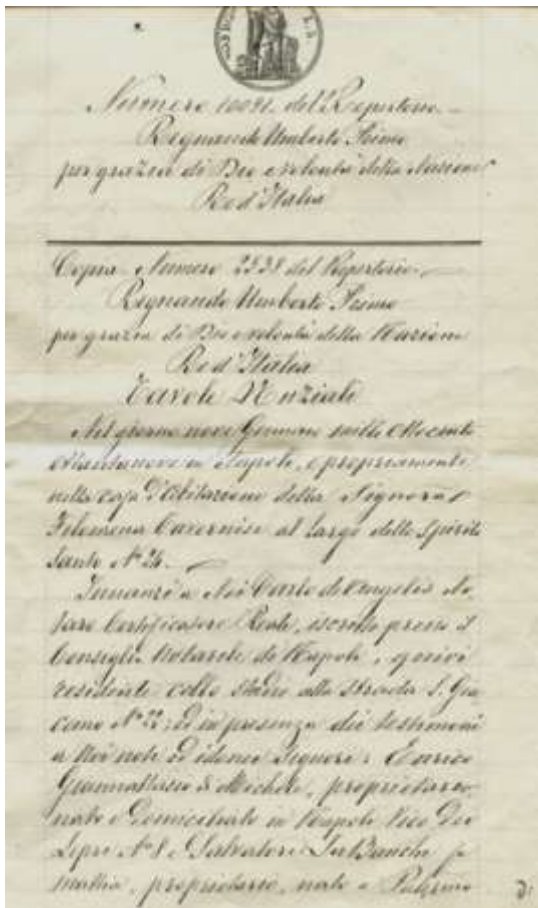 Numero 10091. del Repertorio
Regnando Umberto Primo
per grazia di Dio e volontà della Nazione
Re d'Italia
Copia Numero 2538 del Repertorio
Regnando Umberto Primo
per grazia di Dio e volontà della Nazione
Re d'Italia
Tavole Nuziali
Nel giorno nove Gennaro mille ottocento
ottantanove in Napoli, e propriamente
nella casa d'abitazione della Signora
Filomena al largo dello Spirito
Santo N° 26.
Innanzi a Noi Carlo de Angelis No
taro Certificatore Reale, iscritto presso il
Consiglio Notarile di Napoli, quivi
residente collo studio alla strada S. Gia
como N° 22; ed in presenza dei testimoni
a Noi noti ed idonei Signori: Enrico
Giannattasio di Michele, proprietario,
nato e domiciliato in Napoli Vico
Lepri N° 8 e Salvatore fu
Mattia, proprietario, nato a Palermo
di